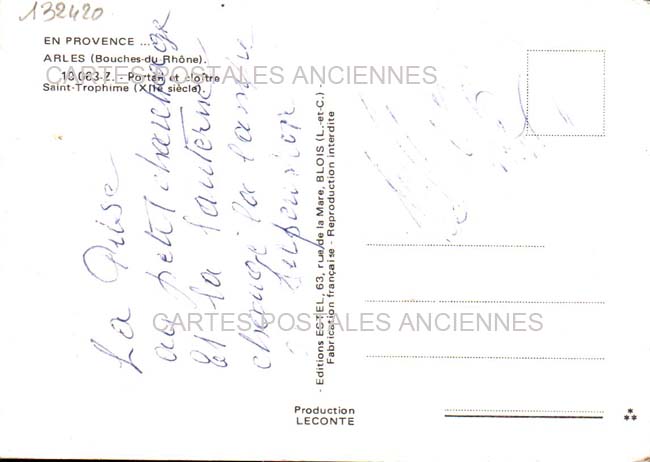 132420
EN PROVENCE ...
ARLES (Bouches-du-Rhône).
10.083-Z. - Portail et cloître
Saint-Trophime (XIIe siècle).
CARTES POSTALES ANCIENNES
La Prise
au petit chauffage
et la lanterne
changé la lampe
suspension
- Editions ESTEL, 63, rue de la Mare, BLOIS (L.-et-C.) -
Fabrication française - Reproduction interdite
CARTES POSTALES ANCIENNES
Production
LECONTE